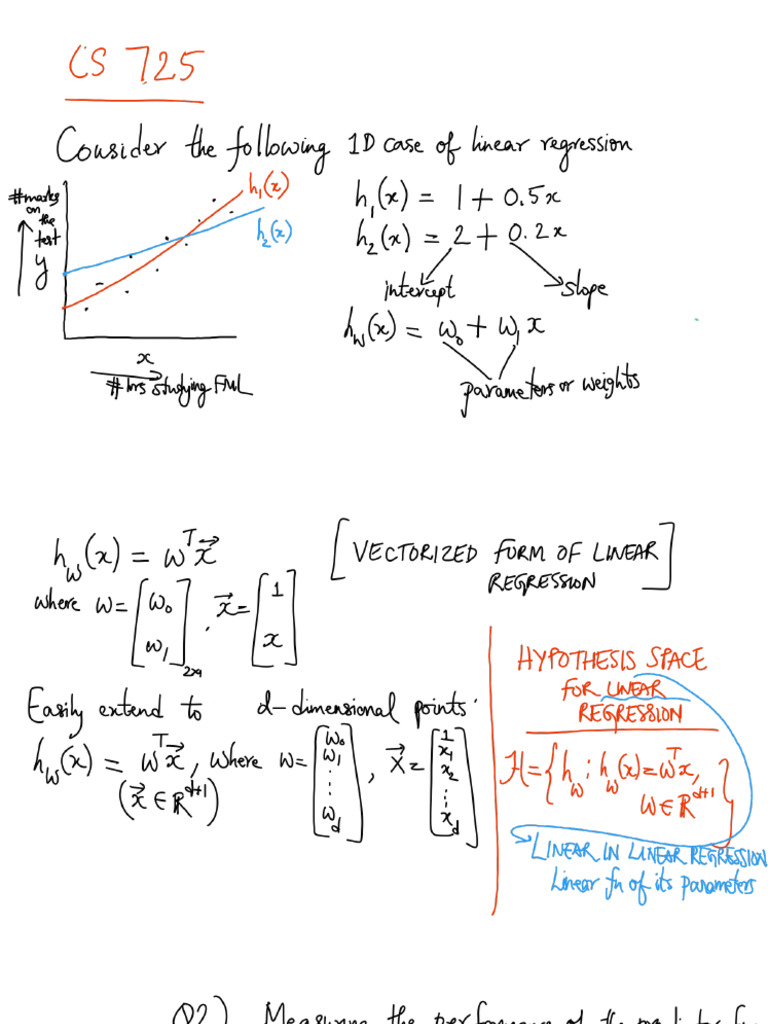 CS 725
Consider the following 1D case of linear regression
#marks
on
the
test
y
h₁(x)
h₂(x)
x
#hrs studying FML
h₁(x) = 1 + 0.5x
h₂(x) = 2 + 0.2x
intercept
slope
h_w(x) = w₀ + w₁x
parameters or weights
h_w(x) = w^T x⃗
[VECTORIZED FORM OF LINEAR
REGRESSION]
where w = [w₀ w₁]₂ₓ₁, x⃗ = [1 x]
Easily extend to d-dimensional points:
h_w(x) = w^T x⃗, where w = [w₀ w₁ ⋮ w_d], x⃗ = [1 x₁ x₂ ⋮ x_d]
(x⃗ ∈ ℝ^{d+1})
HYPOTHESIS SPACE
FOR LINEAR
REGRESSION
ℋ = {h_w : h_w(x) = w^T x,
w ∈ ℝ^{d+1}}
LINEAR IN LINEAR REGRESSION
Linear fn of its parameters
Q2) Measuring the performance of the